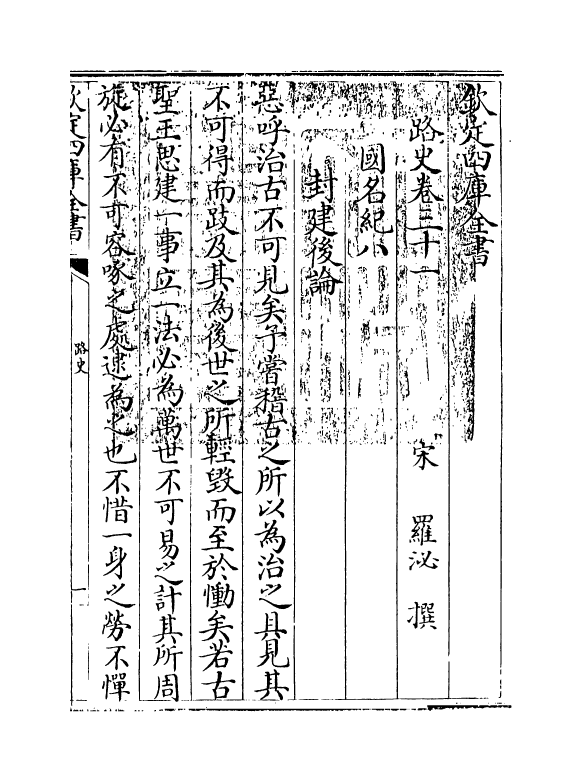 欽定四庫全書
路史卷三十一
宋 羅泌 撰
國名紀八
封建後論
惡呼治古不可見矣予嘗稽古之所以為治之具見其
不可得而跂及其為後世之所輕毀而至於慟矣若古
聖王思建一事立一法必為萬世不可易之計其所周
旋必有不可容啄之處逮為之也不惜一身之勞不憚
欽定四庫全書
路史
一